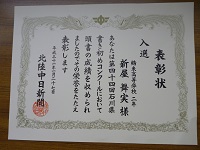 表彰状
入選
輪島高等学校 二年
新屋 舞実 様
あなたは第四十四回石川県
書き初めコンクールにおいて
頭書の成績を収められ
ましたのでその栄誉をたたえ
表彰します
北陸中日新聞